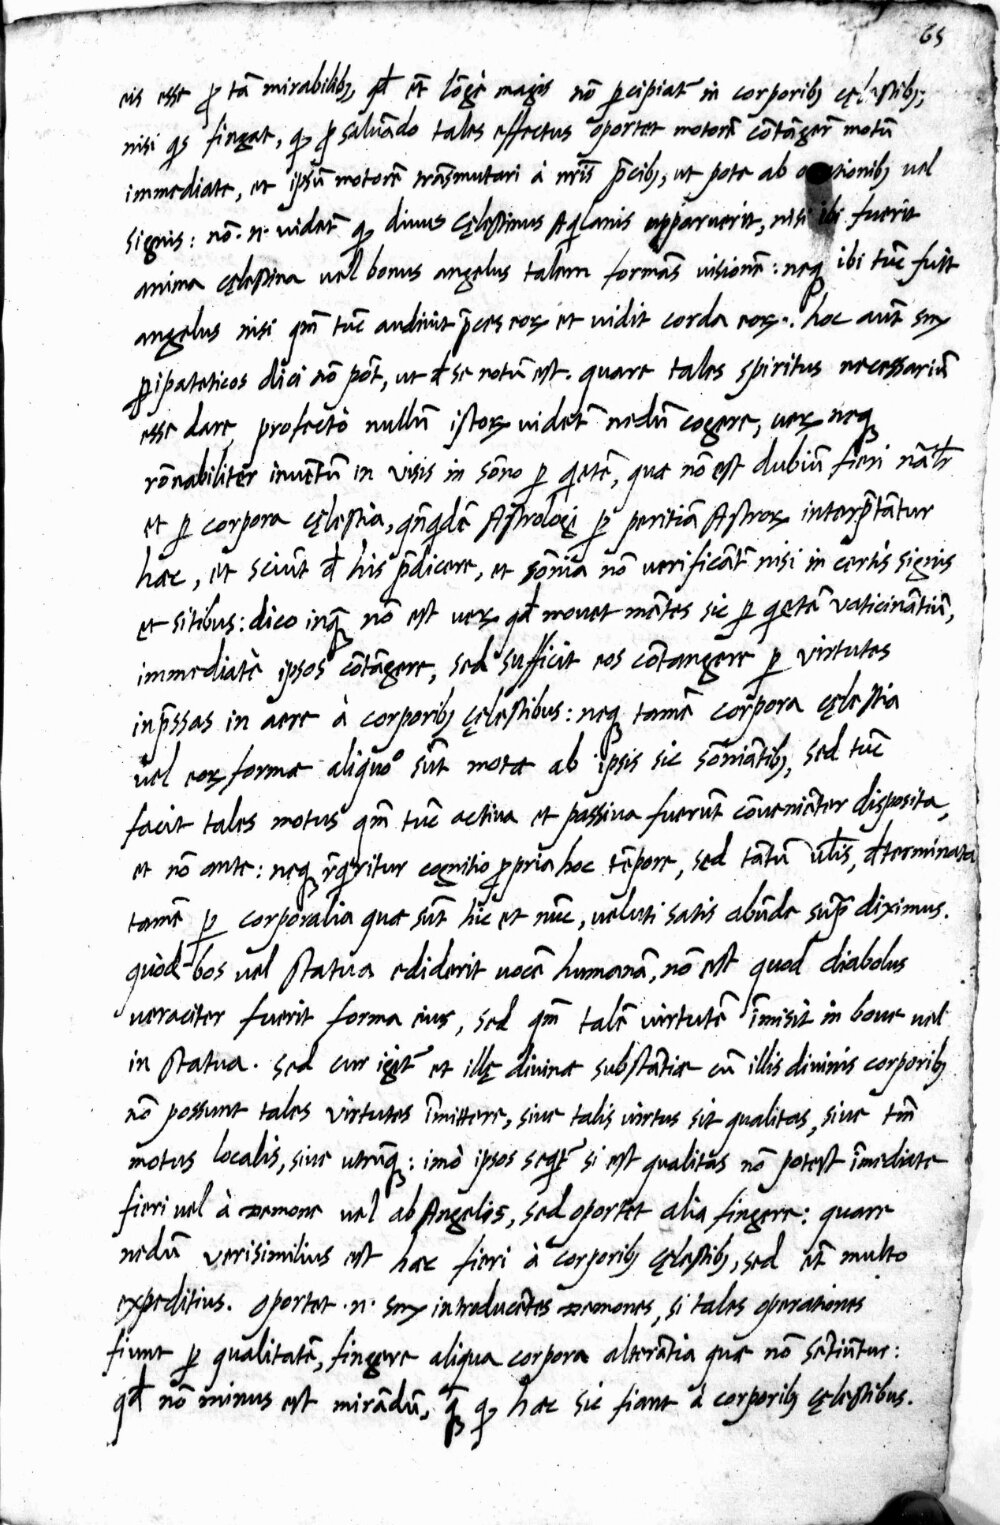 65
eis esse ꝓ tā mirabilibꝫ, qđ et̄ lōgè magis nō ꝑcipiat᷑ in corporibꝫ cęlestibꝫ;
nisi qͥs fingat, qꝫ ꝓ saluādo tales effectus oportet motorē cōtāgerē motū
immediate, et ipsū motorē trāsmutari à nr̄is p̄cibꝫ, ut pote ab ationibꝫ uel
signis: nō .n. uidet᷑ qꝫ diuus Cęlestinus Aqͥlanis apparuerit, nisi ibi fuerit
anima cęlestina uel bonus angelus talem formās uisionē: neqꝫ ibi tūc fuit
angelus nisi qm̄ tūc audiuit p̄ces eoꝝ et uidit corda eoꝝ. hoc aūt scđꝫ
ꝑipateticos dici nō pōt, ut đ se notū est. quare tales spiritus necessariū
esse dare, profectò nullū istoꝝ uidet᷑ nedū cogere, ueꝝ neqꝫ
rōnabiliter inuētū in visis in sōno ꝑ qͥetē, quæ nō est dubiū fieri nāl̄r
et ꝑ corpora cęlestia, qn̄qͥdē Astrologi ꝑ peritiā Astroꝝ interp̄tātur
hæc, et sciūt đ his p̄dicere, et sōnia nō uerificāt᷑ nisi in certis signis
et sitibus: dico inqꝫ nō est ueꝝ qđ mouet mētes sic ꝑ qͥetē vaticinātiū,
immediatè ipsos cōtāgere, sed sufficit eos cōtangere ꝑ virtutes
inp̄ssas in aere à corporibꝫ cęlestibus: neqꝫ tamē corpora cęlestia
uel eoꝝ formæ aliquo° sūt motæ ab ipsis sic sōniātibꝫ, sed tūc
facit tales motus qm̄ tūc actiua et passiua fuerūt cōueniēter disposita,
et nō ante: neqꝫ req̄ritur cognitio ꝓpria hoc tēpore, sed tātū ul̄is, đterminata
tamē ꝑ corporalia quæ sūt hic et nūc, ueluti satis abūde sup̄ diximus.
quòd bos uel statua ediderit uocē humanā, nō est quod diabolus
ueraciter fuerit forma eius, sed qm̄ talē uirtutē īmisit in boue uel
in statua. sed cur igit᷑ et illę diuinæ substātiæ cū illis diuinis corporibꝫ
nō possunt tales virtutes īmittere, siue talis uirtus sit qualitas, siue tm̄
motus localis, siue utrūqꝫ: imò ipsos seqͥt᷑ si est qualitas nō potest īmediate
fieri uel à Demone uel ab Angelis, sed oportet alia fingere: quare
nedū verisimilius est hæc fieri à corporibꝫ cęlestibꝫ, sed et̄ multo
expeditius. oportet .n. scđꝫ introducētes Demones, si tales operationes
fiunt ꝑ qualitatē, fingere aliqua corpora alterātia quæ nō sētiūtur:
qđ nō minus est mirādū, qꝫ̄ qꝫ hæc sic fiant à corporibꝫ cęlestibus.